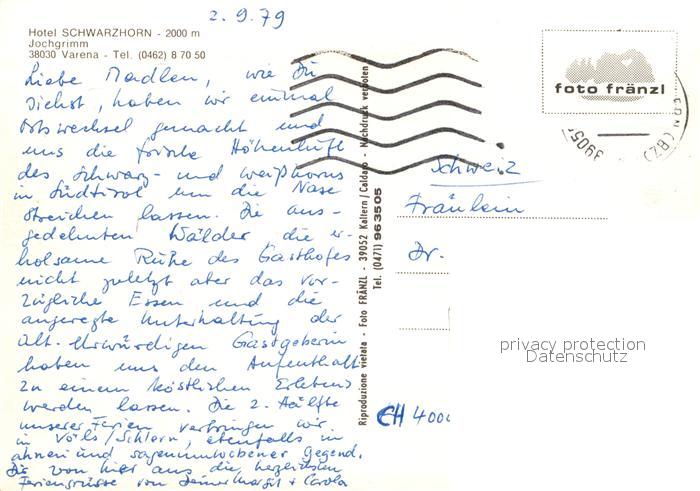 2.9.79
Hotel SCHWARZHORN - 2000 m
Jochgrimm
38030 Varena - Tel. (0462) 8 70 50
Liebe Madlen, wie Du
siehst, haben wir einmal
Ortswechsel gemacht und
uns die frische Höhenluft
des Schwarz- und Weißhorns
in Südtirol um die Nase
streichen lassen. Die aus-
gedehnten Wälder die er-
holsame Ruhe des Gasthofes
nicht zuletzt aber das vor-
zügliche Essen und die
angeregte Unterhaltung der
alt-ehrwürdigen Gastgeberin
haben uns den Aufenthalt
zu einem köstlichen Erlebnis
werden lassen. Die 2. Hälfte
unserer Ferien verbringen wir
in Völs/Schlern, ebenfalls in
ahnen und sagenumwobener Gegend.
Dir von hier aus die herzlichsten
Feriengrüsse von Deiner Margit + Carola
Riproduzione vietata - Foto FRÄNZL - 39052 Kaltern/Caldaro - Nachdruck verboten
Tel. (0471) 963505
foto fränzl
3905
(BZ)
Schweiz
Fräulein
Dr.
CH 4000
privacy protection
Datenschutz